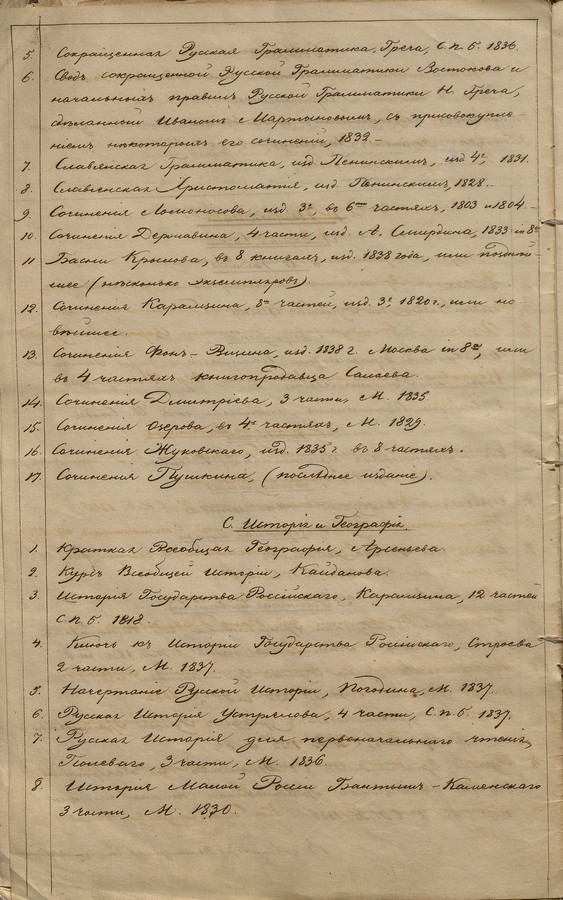 5. Сокращенная Русская Грамматика, Греча, С.п.б. 1836.
6. Сводъ сокращенной Русской Грамматики Востокова и
начальныхъ правилъ Русской Грамматики Н. Греча,
сдѣланный Иваномъ Мартыновымъ, съ присовокупле-
ніемъ нѣкоторыхъ его сочиненій, 1832 -
7. Славянская Грамматика, изд. Пенинскимъ, изд 4е, 1831.
8. Славянская Христоматія, изд. Пенинскимъ, 1828.
9. Сочиненія Ломоносова, изд. 3е, въ 6ти частяхъ, 1803 и 1804. -
10. Сочиненія Державина, 4 части, изд. А. Смирдина, 1833 in 8о
11 Басни Крылова, въ 8 книгахъ, изд. 1838 года, или позднѣй-
шее (нѣсколько экземпляровъ).
12. Сочиненія Карамзина, частей, изд. 3е, 1820 г., или но-
вѣйшее.
13. Сочиненія Фонъ-Визина, изд. 1838 г. Москва in 8о, или
въ 4 частяхъ книгопродавца Салаева.
14. Сочиненія Дмитріева, 3 части, М. 1835
15. Сочиненія Озерова, въ 4 частяхъ, М. 1829.
16. Сочиненія Жуковскаго, изд. 1835 г въ 8 частяхъ.
17. Сочиненія Пушкина, (послѣднее изданіе).
С. Исторія и Географія.
1. Краткая Всеобщая Географія, Арсеньева.
2. Курсъ Всеобщей Исторіи, Кайданова.
3. Исторія Государства Россійскаго, Карамзина, 12 частей
С.п.б. 1818.
4. Ключъ къ Исторіи Государства Россійскаго, Строева
2 части, М. 1837.
5. Начертаніе Русской Исторіи, Погодина, М. 1837.
6. Русская Исторія Устрялова, 4 части, С.п.б. 1837.
7. Русская Исторія для первоначальнаго чтенія,
Полеваго, 3 части, М. 1836.
8. Исторія Малой Россіи Бантышъ-Каменскаго
3 части, М. 1830.